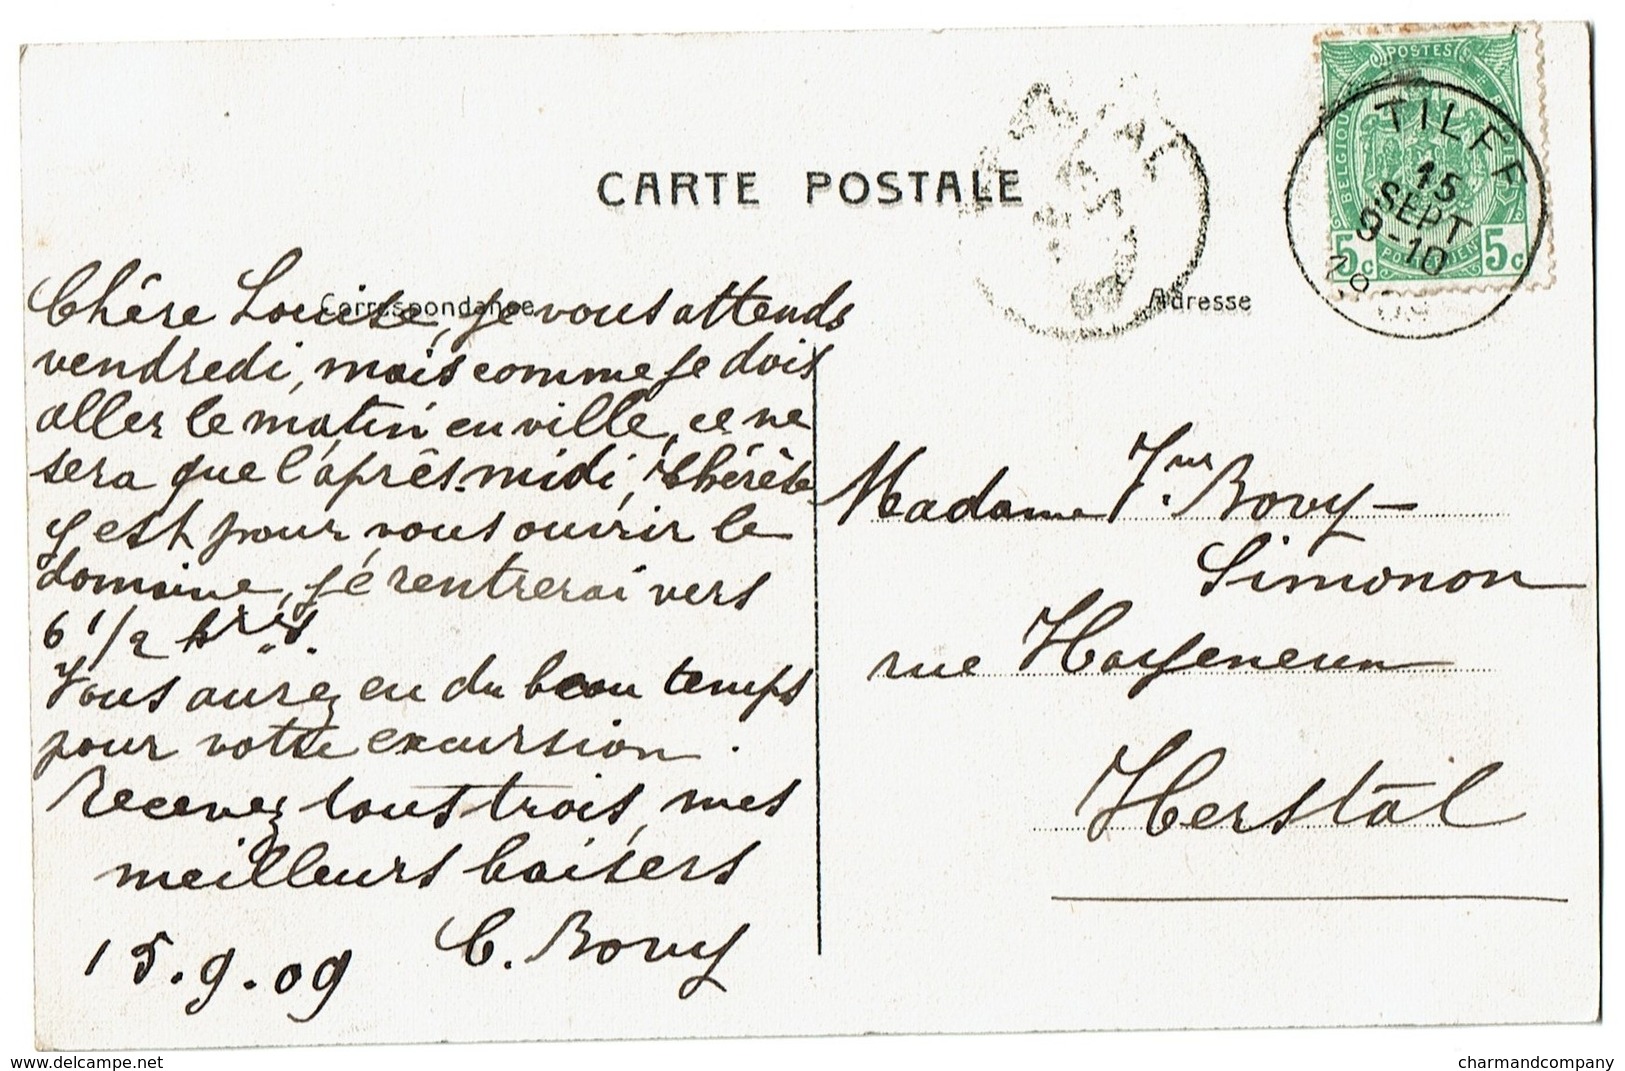 CARTE POSTALE
Correspondance
Adresse
POSTES
BELGIQUE
5c 5c
TILFF
15
SEPT
9-10
09
Chère Louise, je vous attends
vendredi, mais comme je dois
aller le matin en ville, ce ne
sera que l'après-midi, Thérèse
y est pour vous ouvrir le
domaine, je rentrerai vers
6 1/2 hres.
Vous aurez eu du beau temps
pour votre excursion.
Recevez tous trois, mes
meilleurs baisers
15.9.09 C. Bovy
Madame Bovy-
Simonon
rue Hayeneux
Herstal
delcampe.net
charmandcompany